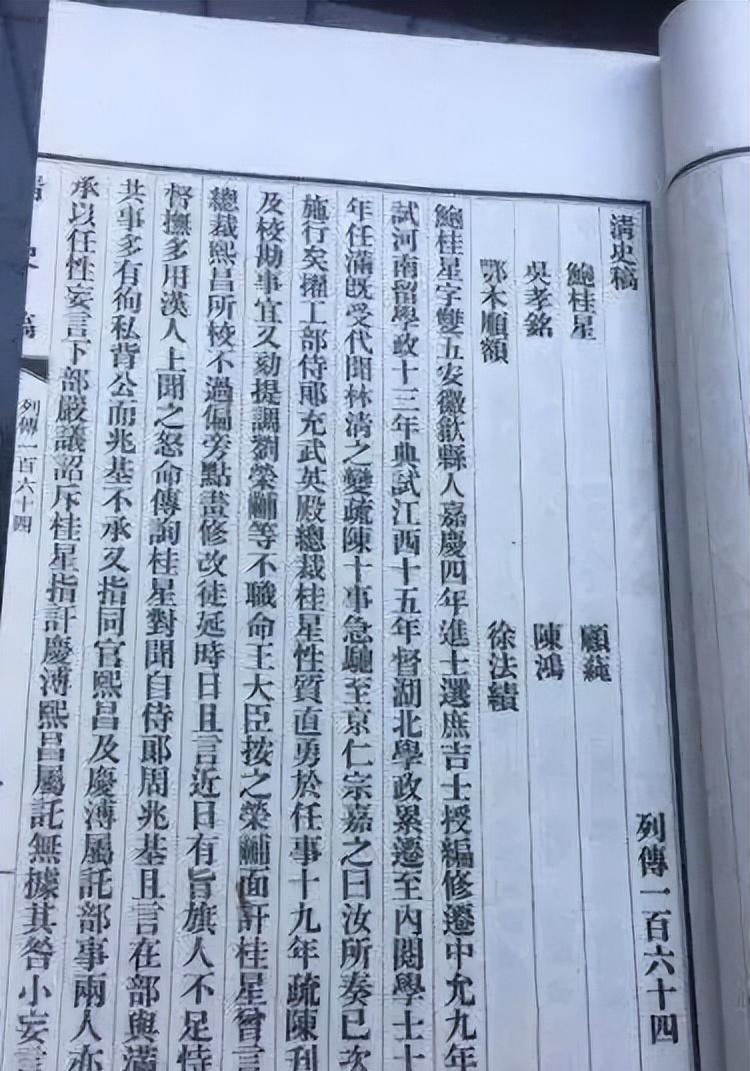 清史稿
列傳一百六十四
鮑桂星
顧蒓
吳孝銘
陳鴻
鄂木順額
徐法績
鮑桂星字雙五安徽歙縣人嘉慶四年進士選庶吉士授編修遷中允九年
試河南留學政十三年典試江西十五年督湖北學政累遷至內閣學士十
年任滿旣受代聞林淸之變疏陳十事急馳至京仁宗嘉之曰汝所奏已次
施行矣擢工部侍郞充武英殿總裁桂星性質直勇於任事十九年疏陳刋
及校勘事宜又劾提調劉榮黼等不職命王大臣按之榮黼面訐桂星曾言
總裁熙昌所校不過偏旁點畫修改徒延時日且言近日有旨旗人不足恃
督撫多用漢人上聞之怒命傳詢桂星對聞自侍郞周兆基且言在部與滿
共事多有徇私背公而兆基不承又指同官熙昌及慶溥屬託部事兩人亦
承以任性妄言下部嚴議詔斥桂星指訐慶溥熙昌屬託無據其咎小妄言
清史稿
列傳一百六十四